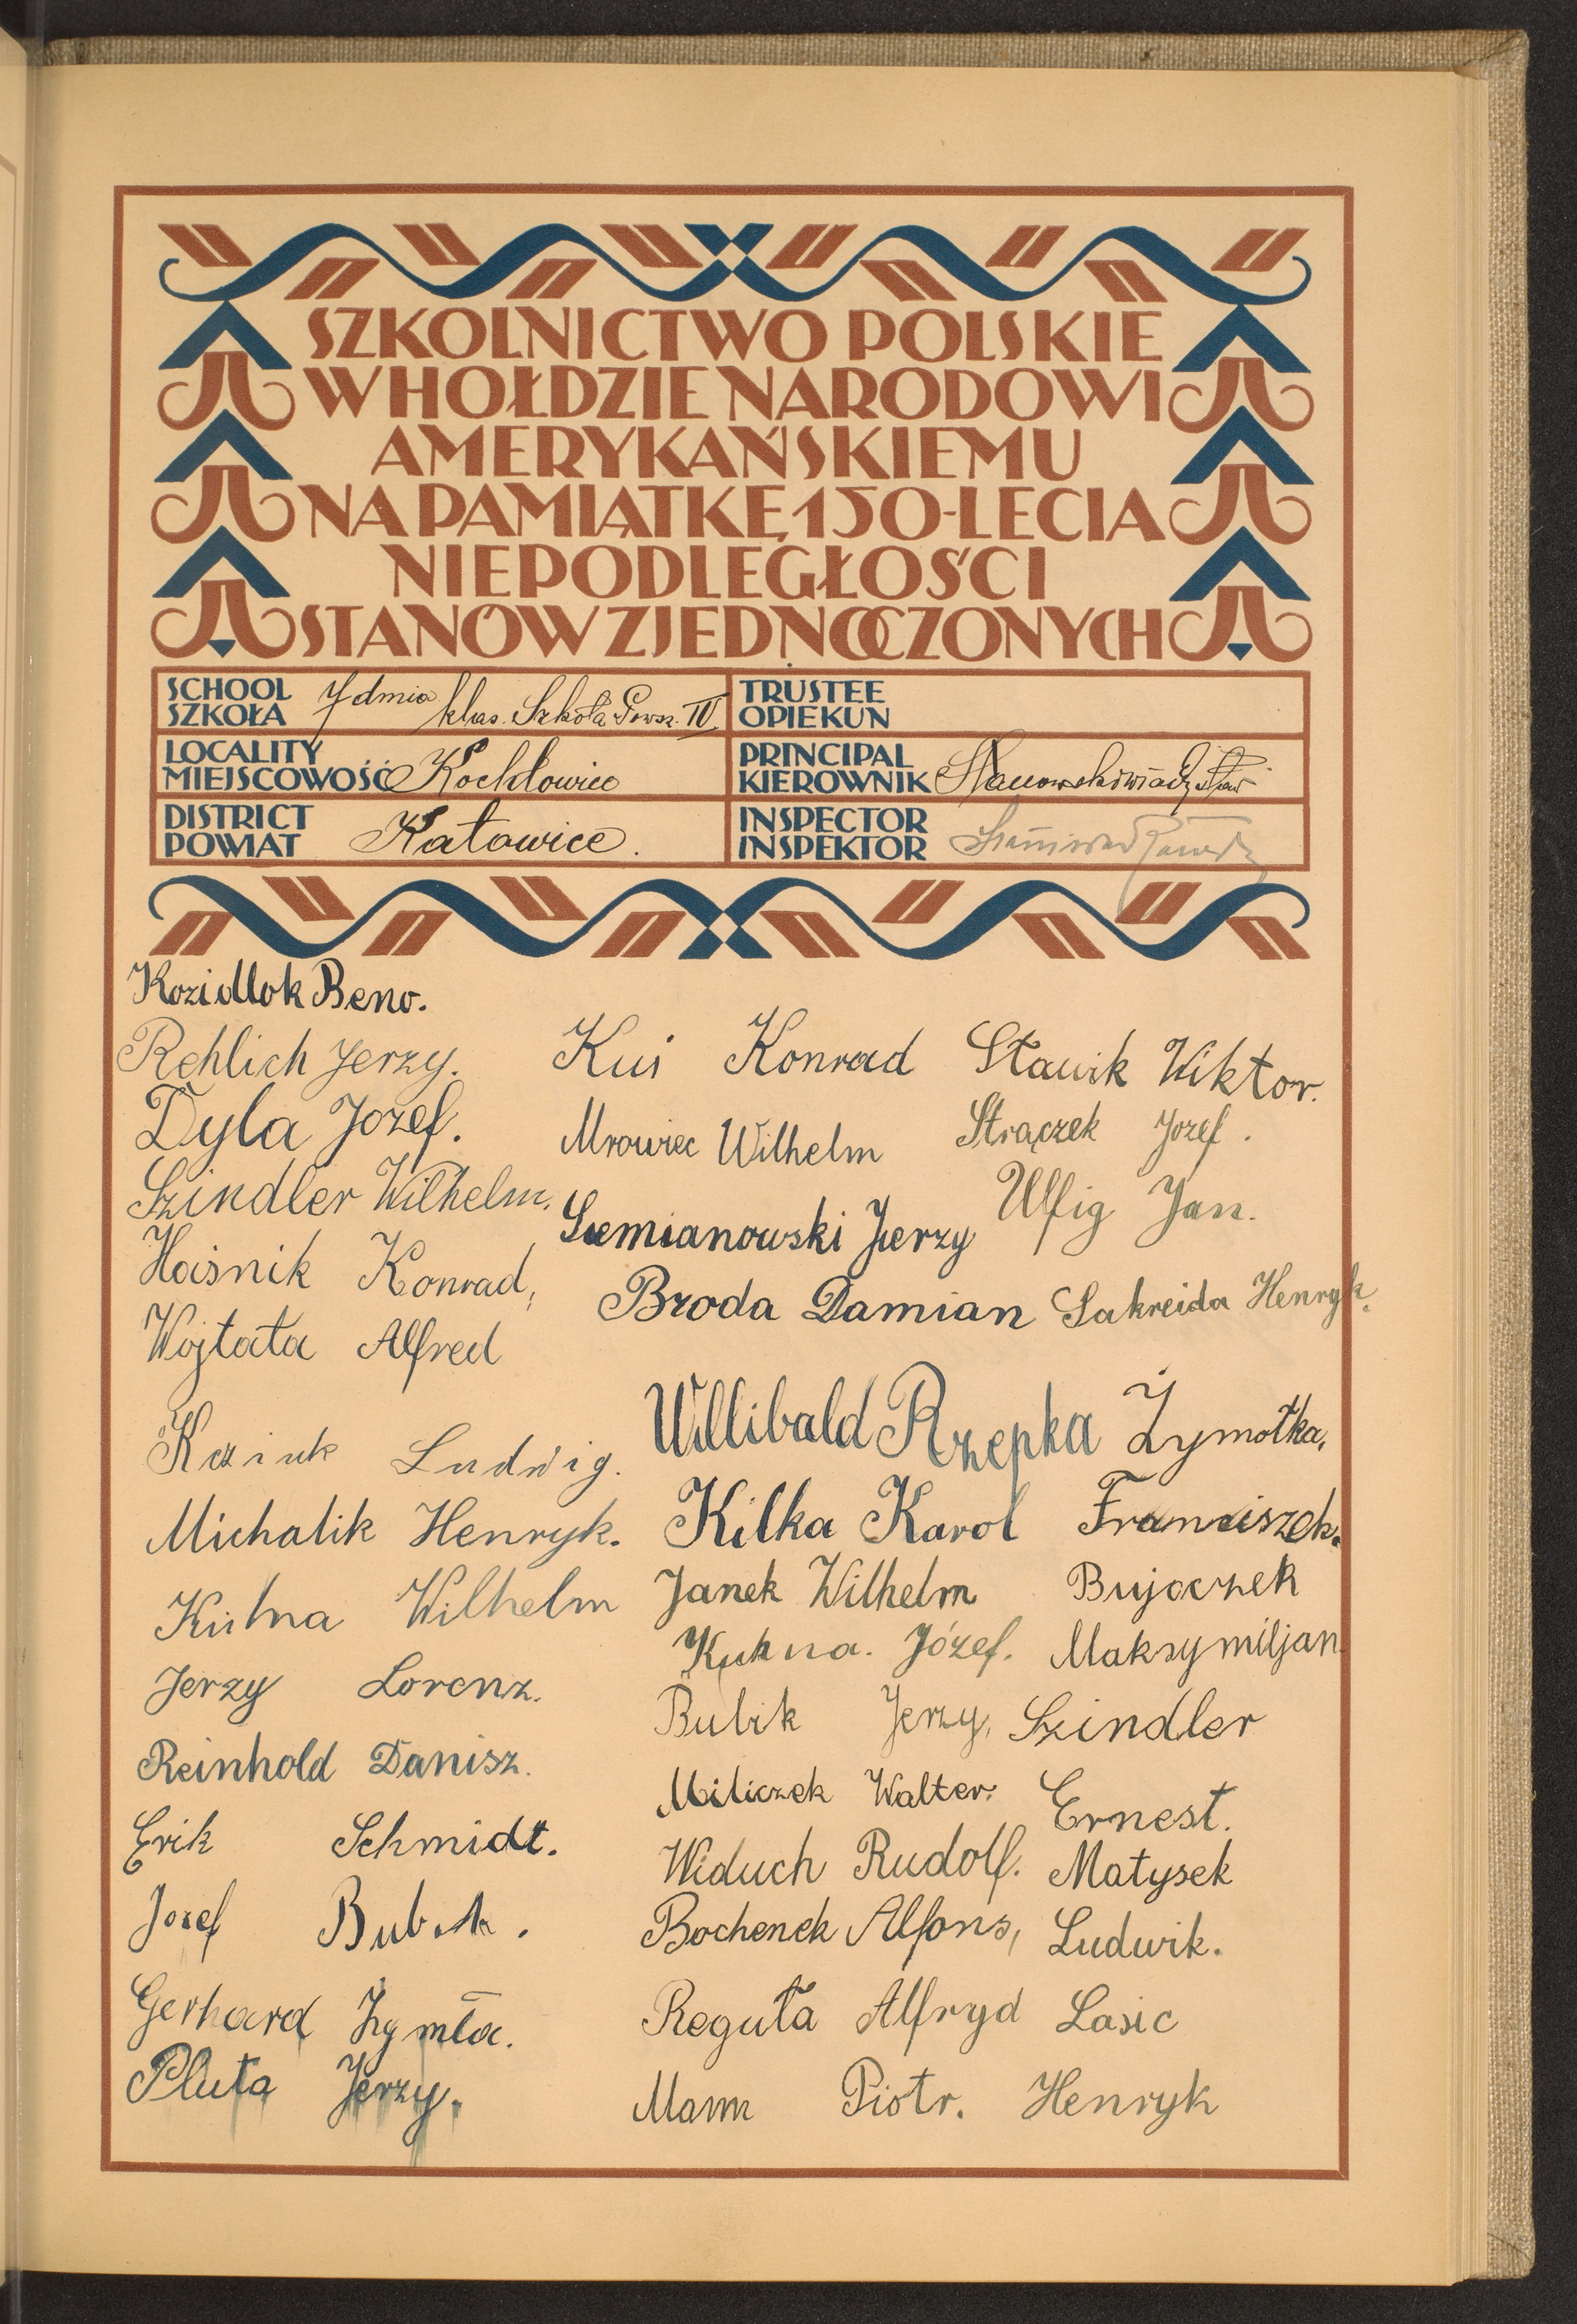 SZKOLNICTWO POLSKIE
W HOŁDZIE NARODOWI
AMERYKAŃSKIEMU
NA PAMIĄTKĘ 150-LECIA
NIEPODLEGŁOŚCI
STANÓW ZJEDNOCZONYCH
SCHOOL
SZKOŁA
7dmio klas. Szkoła Powsz. IV
TRUSTEE
OPIEKUN
LOCALITY
MIEJSCOWOŚĆ
Kochłowice
PRINCIPAL
KIEROWNIK
DISTRICT
POWIAT
Katowice.
INSPECTOR
INSPEKTOR
Kozidlok Beno.
Rehlich Jerzy.
Dyla Jozef.
Szindler Wilhelm.
Hoiśnik Konrad,
Wojtata Alfred
Ludwig.
Michalik Henryk.
Wilhelm
Jerzy Lorenz.
Reinhold Danisz.
Erik Schmidt.
Jozef Bubik.
Gerhard Zymła.
Pluta Jerzy.
Kuś Konrad
Mrowiec Wilhelm
Siemianowski Jerzy
Broda Damian
Willibald Rzepka
Kilka Karol
Janek Wilhelm
Kuhna. Józef.
Bubik Jerzy.
Miliczek Walter.
Widuch Rudolf.
Bochenek Alfons,
Reguła Alfryd
Mann Piotr.
Stawik Wiktor.
Strączek Jozef.
Ulfig Jan.
Sakreida Henryk.
Żymołka,
Franciszek.
Bujoczek
Maksymiljan.
Szindler
Ernest.
Matysek
Ludwik.
Lasic
Henryk